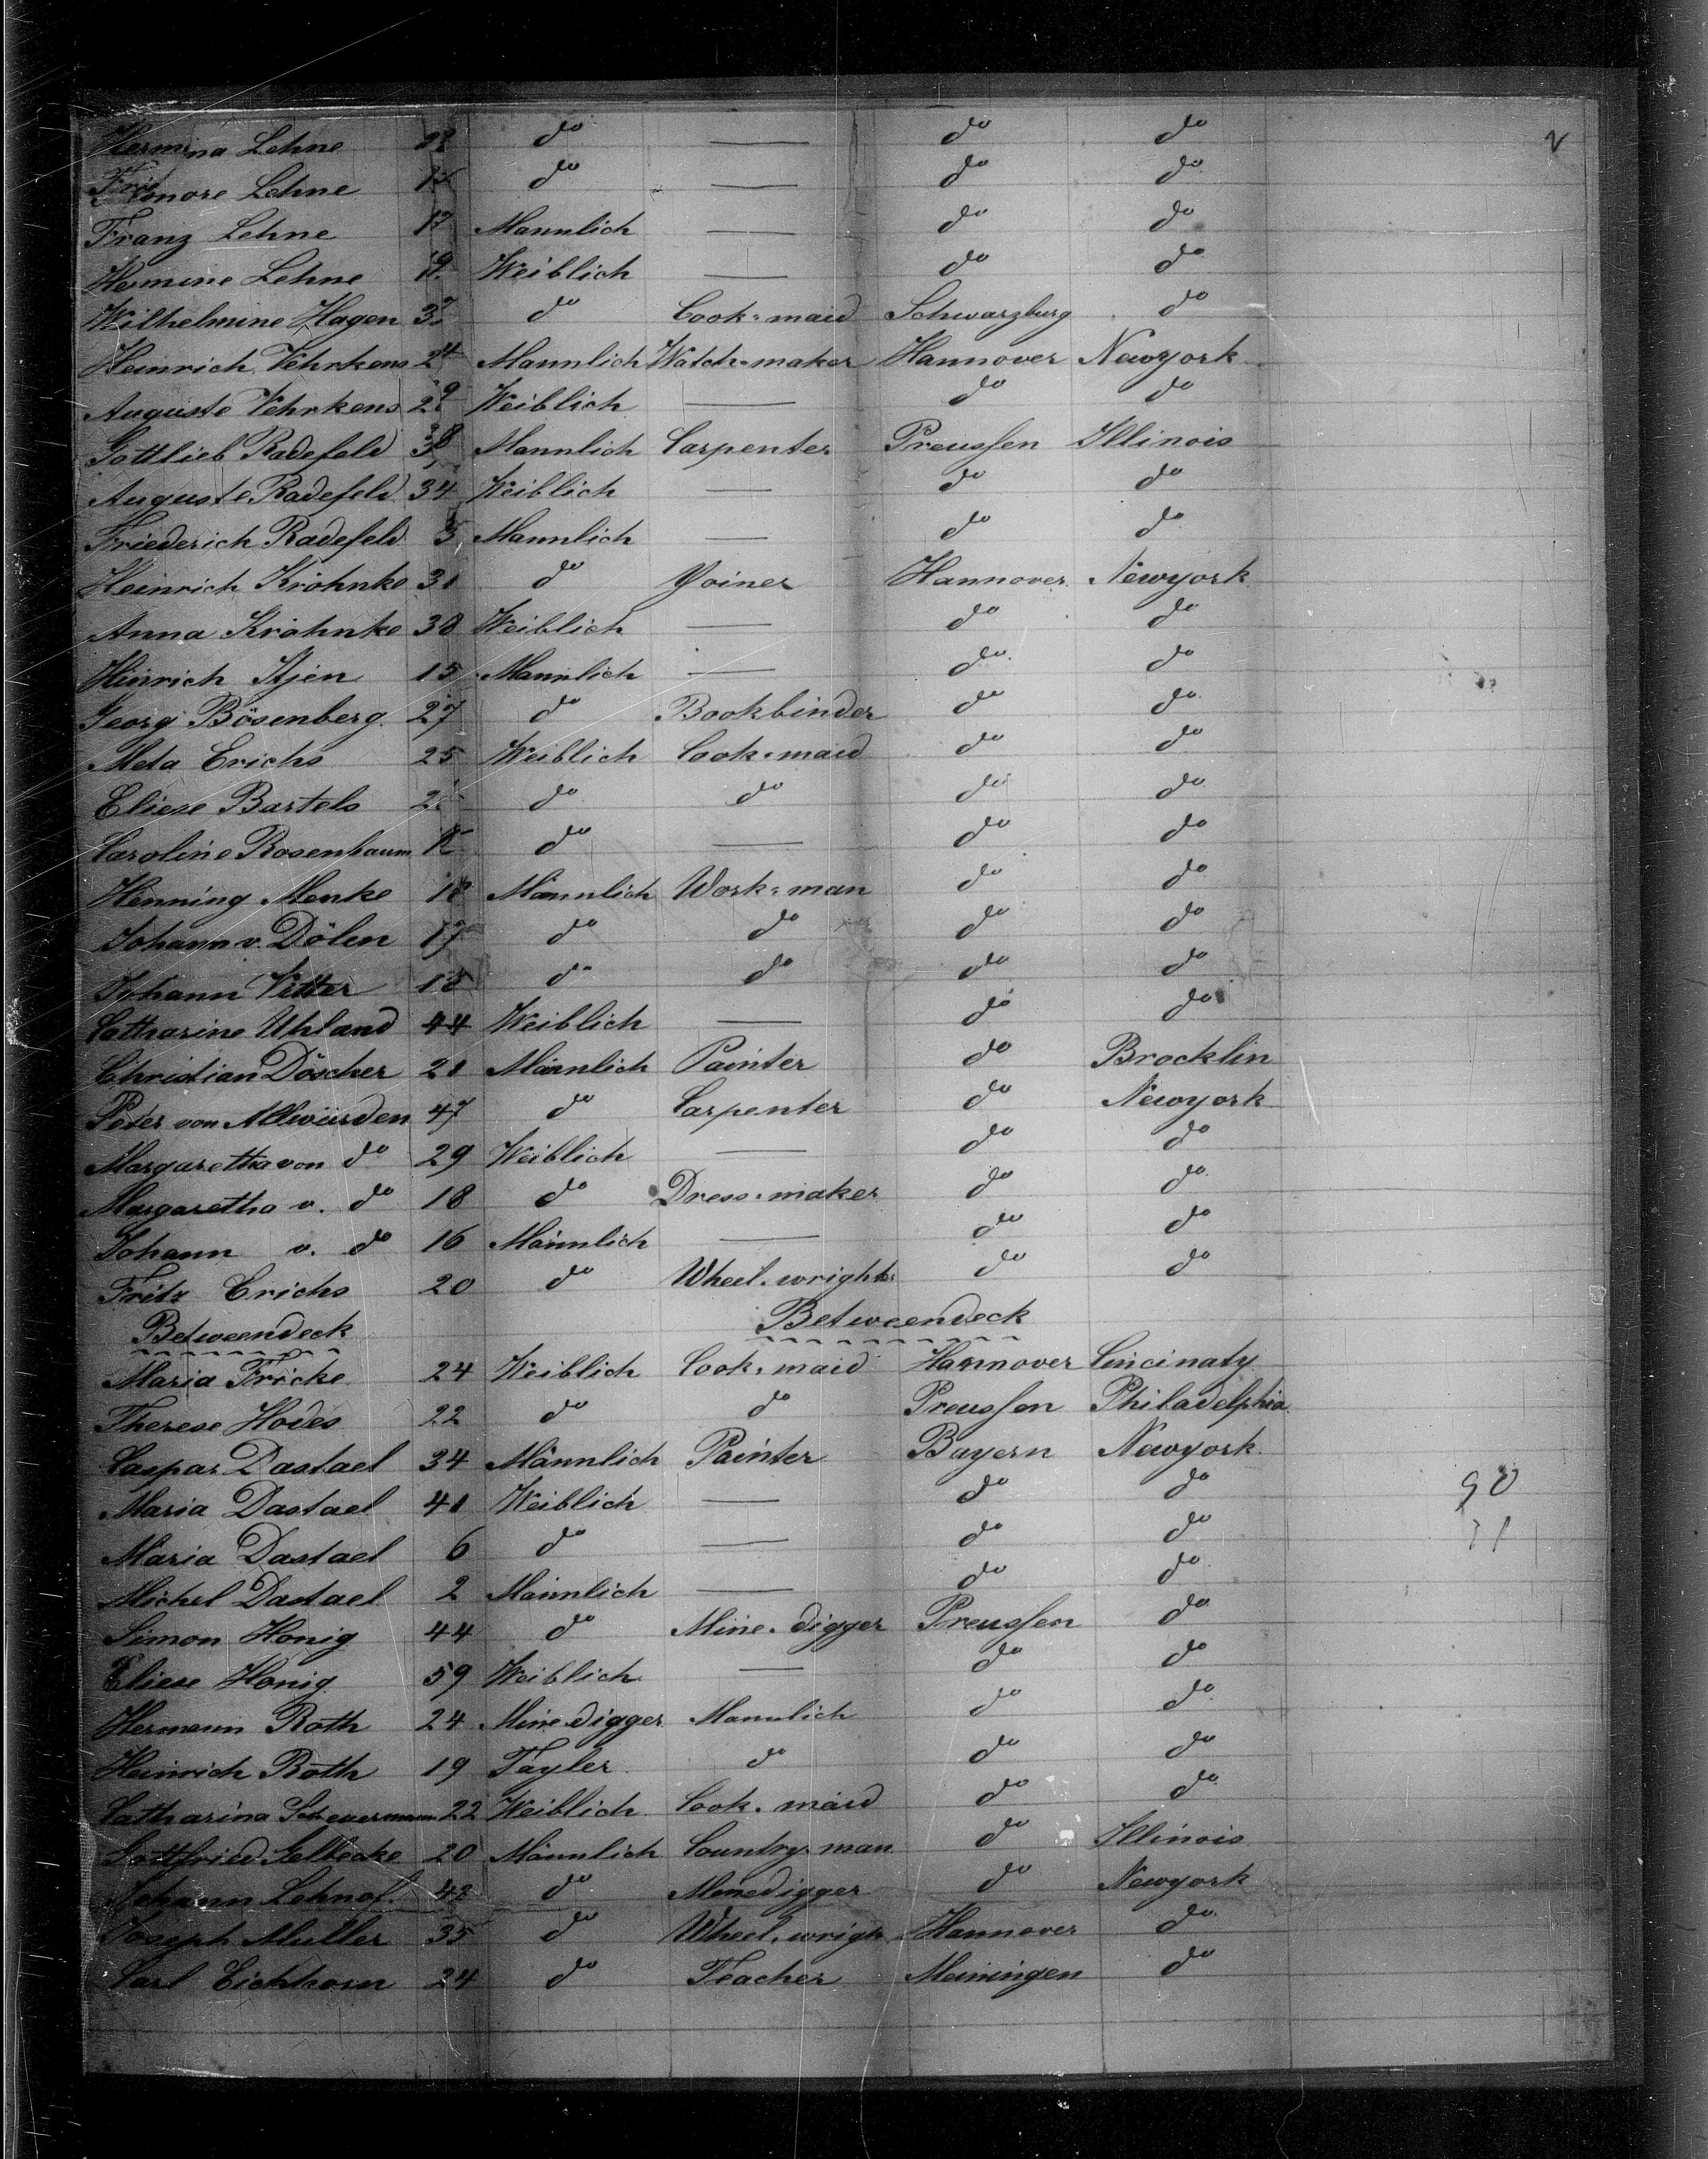 2
Hermina Lehne do — do do
Elonore Lehne do — do do
Franz Lehne 17 Mannlich — do do
Hermine Lehne Weiblich — do do
Wilhelmine Hagen 37 do Cook-maid Schwarzburg do
Heinrich Vehrkens 24 Mannlich Watch-maker Hannover Newyork
Auguste Vehrkens 29 Weiblich — do do
Gottlieb Radefeld 38 Mannlich Carpenter Preussen Illinois
Auguste Radefeld 34 Weiblich — do do
Friederich Radefeld 5 Mannlich — do do
Heinrich Kröhnke 31 do Joiner Hannover Newyork
Anna Kröhnke 30 Weiblich — do do
Hinrich Itjen 15 Mannlich — do do
Georg Bösenberg 27 do Bookbinder do do
Meta Erichs 25 Weiblich Cook-maid do do
Eliese Bartels do do do do
Caroline Rosenbaum do — do do
Henning Menke 18 Männlich Work-man do do
Johann v. Dölen 17 do do do do
Johann Vetter 18 do do do do
Catharine Uhland 44 Weiblich — do do
Christian Döscher 21 Männlich Painter do Brocklin
Peter von Allwürden 47 do Carpenter do Newyork
Margaretha von do 29 Weiblich — do do
Margaretha v. do 18 do Dress-maker do do
Johann v. do 16 Männlich — do do
Fritz Erichs 20 do Wheel-wright do do
Betweendeck Betweendeck
Maria Fricke 24 Weiblich Cook-maid Hannover Cincinaty
Therese Hodes 22 do do Preussen Philadelphia
Caspar Dastael 34 Männlich Painter Bayern Newyork
Maria Dastael 41 Weiblich — do do 90
Maria Dastael 6 do — do do 71
Michel Dastael 2 Männlich — do do
Simon Honig 44 do Mine-digger Preussen do
Eliese Honig 59 Weiblich — do do
Hermann Roth 24 Mine digger Mannlich do do
Heinrich Roth 19 Tayler do do do
Catharina Scheuermann 22 Weiblich Cook-maid do do
Gottfried Gelbecke 20 Männlich Country-man do Illinois
Johann Lehnof 42 do Minedigger do Newyork
Joseph Muller 35 do Wheel-wrigh Hannover do
Carl Eichhorn 24 do Teacher Meiningen do